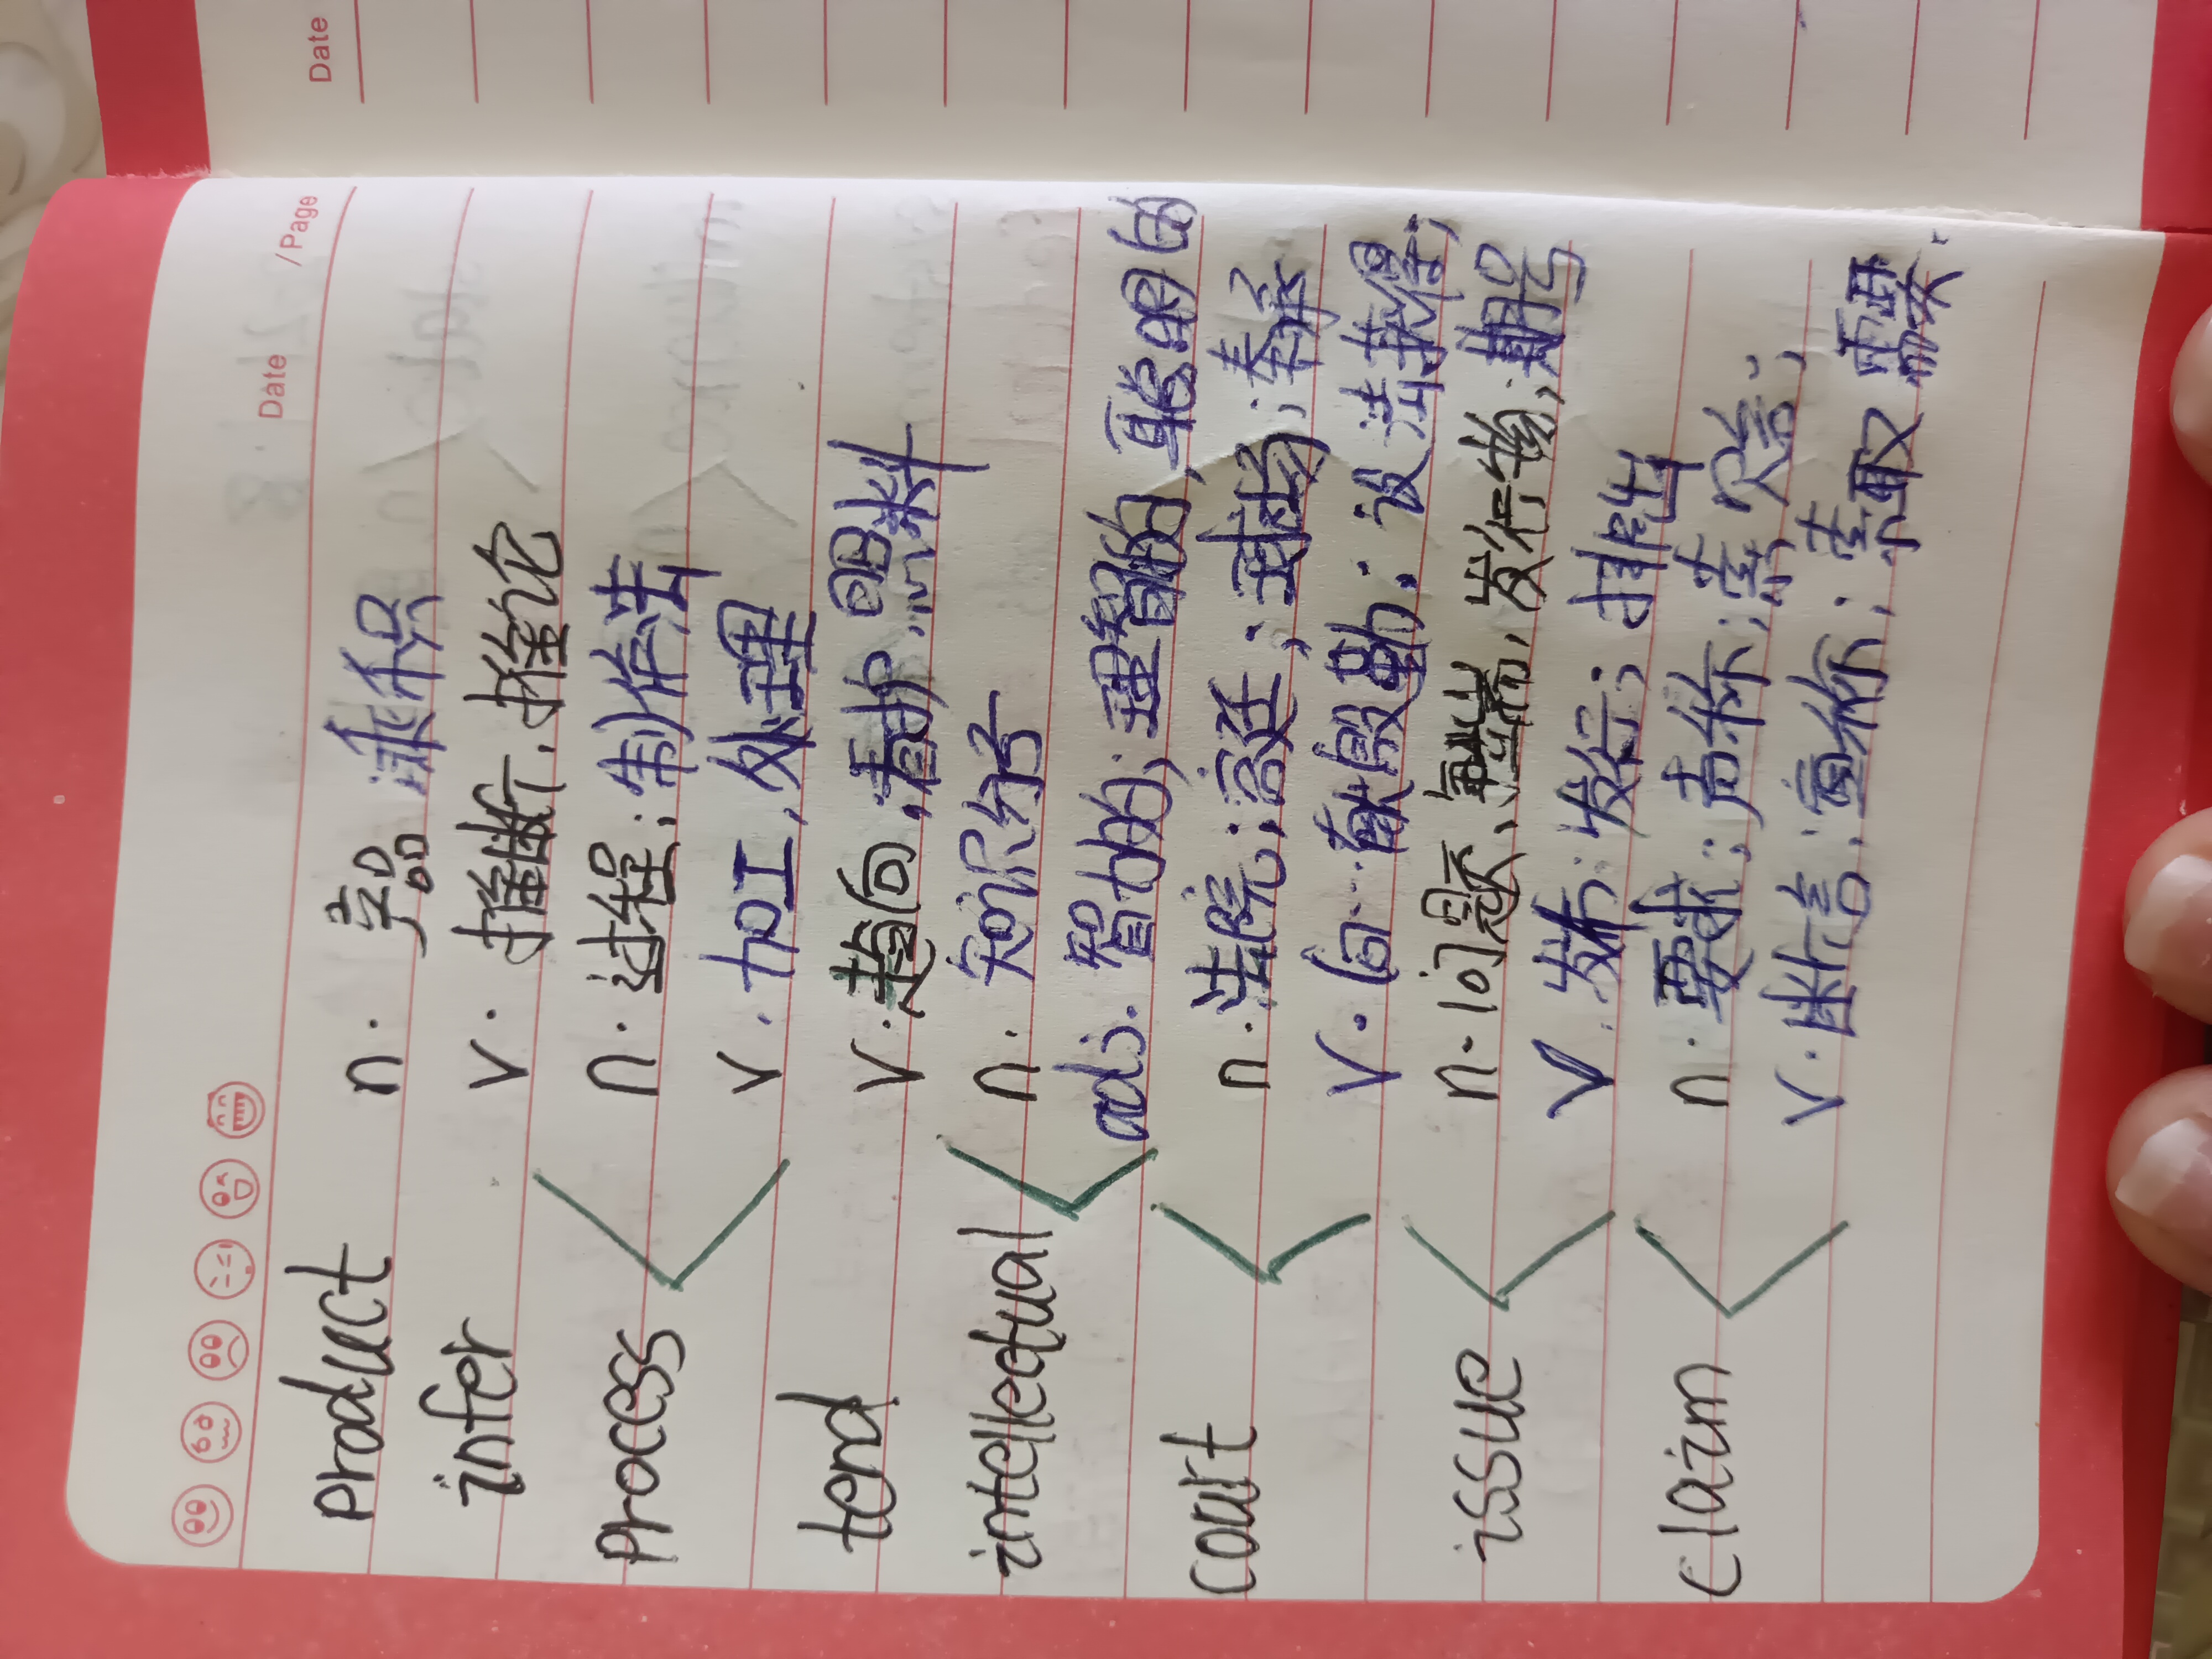 Date
Date /Page
product n. 产品 乘积
infer v. 推断,推论
process n. 过程;制作法
v. 加工,处理
tend v. 趋向,看护,照料
intellectual n. 知识分子
adj. 智力的;理智的,聪明的
court n. 法院;宫廷;球场;奉承
v. 向…献殷勤;设法获得;
issue n. 问题、争端,发行物,期号
v. 发布;发行;排出
claim n. 要求;声称;索赔;
v. 断言;宣称;索取 需要.